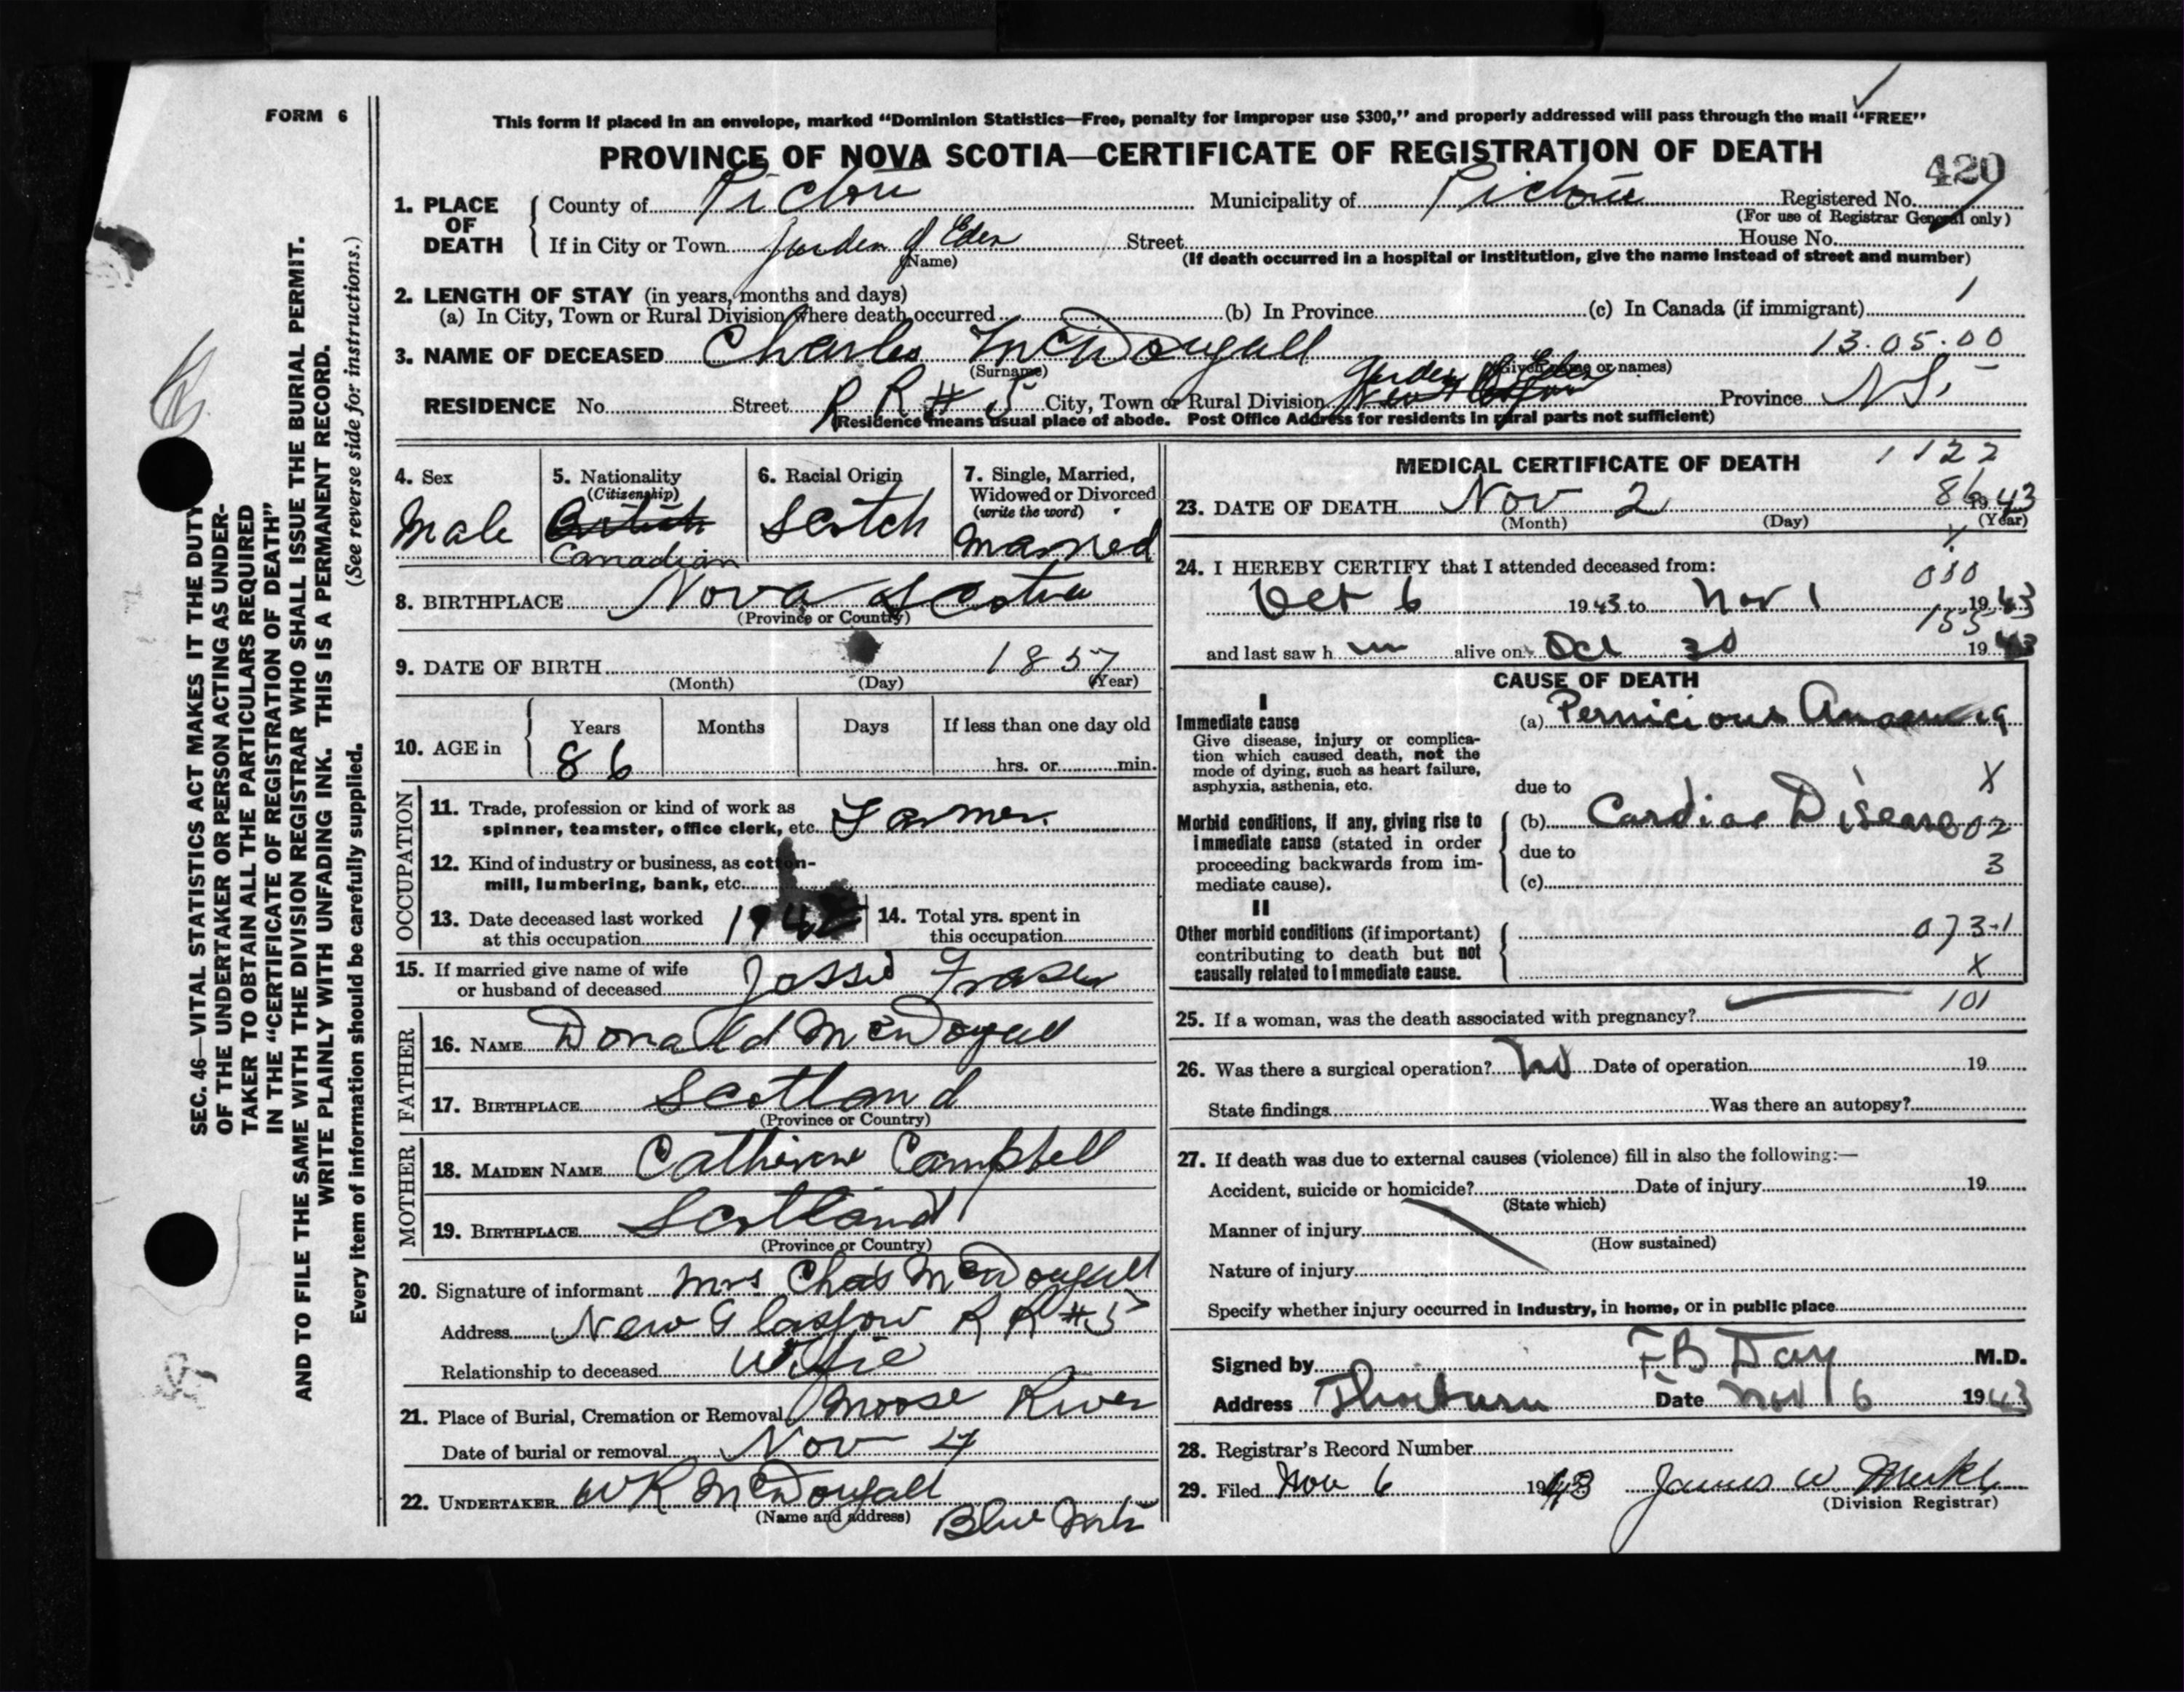 FORM 6
This form if placed in an envelope, marked "Dominion Statistics—Free, penalty for improper use $300," and properly addressed will pass through the mail "FREE"
PROVINCE OF NOVA SCOTIA—CERTIFICATE OF REGISTRATION OF DEATH
420
1. PLACE OF DEATH
County of Pictou Municipality of Pictou Registered No.
(For use of Registrar General only)
If in City or Town Garden of Eden Street House No.
(Name) (If death occurred in a hospital or institution, give the name instead of street and number)
2. LENGTH OF STAY (in years, months and days)
(a) In City, Town or Rural Division where death occurred (b) In Province (c) In Canada (if immigrant) 1
3. NAME OF DECEASED Charles McDougall 13.05.00
(Surname) (Given name or names)
Garden of Eden
RESIDENCE No. Street R R # 5 City, Town or Rural Division New Glasgow Province N.S.
(Residence means usual place of abode. Post Office Address for residents in rural parts not sufficient)
4. Sex Male
5. Nationality (Citizenship) British Canadian
6. Racial Origin Scotch
7. Single, Married, Widowed or Divorced (write the word) Married
8. BIRTHPLACE Nova Scotia
(Province or Country)
9. DATE OF BIRTH 1857
(Month) (Day) (Year)
10. AGE in Years 86 Months Days If less than one day old hrs. or min.
OCCUPATION
11. Trade, profession or kind of work as
spinner, teamster, office clerk, etc. Farmer
12. Kind of industry or business, as cotton-
mill, lumbering, bank, etc.
13. Date deceased last worked
at this occupation 194
14. Total yrs. spent in
this occupation
15. If married give name of wife
or husband of deceased Jessie Fraser
FATHER
16. NAME Donald McDougall
17. BIRTHPLACE Scotland
(Province or Country)
MOTHER
18. MAIDEN NAME Catherine Campbell
19. BIRTHPLACE Scotland
(Province or Country)
20. Signature of informant Mrs Chas McDougall
Address New Glasgow R R #5
Relationship to deceased Wife
21. Place of Burial, Cremation or Removal Moose River
Date of burial or removal Nov 4
22. UNDERTAKER W R McDougall
(Name and address) Blue Mtn
MEDICAL CERTIFICATE OF DEATH 1122
23. DATE OF DEATH Nov 2 86 1943
(Month) (Day) (Year)
24. I HEREBY CERTIFY that I attended deceased from:
Oct 6 1943 to Nov 1 1943
155
and last saw h im alive on Oct 30 1943
CAUSE OF DEATH
I
Immediate cause (a) Pernicious Anaemia
Give disease, injury or complica-
tion which caused death, not the
mode of dying, such as heart failure,
asphyxia, asthenia, etc. due to X
Morbid conditions, if any, giving rise to (b) Cardiac Disease 02
immediate cause (stated in order due to
proceeding backwards from im- 3
mediate cause). (c)
II
Other morbid conditions (if important) 073-1
contributing to death but not
causally related to immediate cause. X
25. If a woman, was the death associated with pregnancy? 101
26. Was there a surgical operation? No Date of operation 19
State findings Was there an autopsy?
27. If death was due to external causes (violence) fill in also the following:—
Accident, suicide or homicide? Date of injury 19
(State which)
Manner of injury
(How sustained)
Nature of injury
Specify whether injury occurred in industry, in home, or in public place
Signed by F B Day M.D.
Address Thorburn Date Nov 6 1943
28. Registrar's Record Number
29. Filed Nov 6 1943 James W.
(Division Registrar)
SEC. 46—VITAL STATISTICS ACT MAKES IT THE DUTY
OF THE UNDERTAKER OR PERSON ACTING AS UNDER-
TAKER TO OBTAIN ALL THE PARTICULARS REQUIRED
IN THE "CERTIFICATE OF REGISTRATION OF DEATH"
AND TO FILE THE SAME WITH THE DIVISION REGISTRAR WHO SHALL ISSUE THE BURIAL PERMIT.
WRITE PLAINLY WITH UNFADING INK. THIS IS A PERMANENT RECORD.
Every item of information should be carefully supplied. (See reverse side for instructions.)